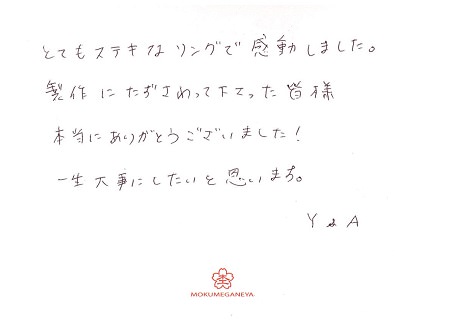 とてもステキなリングで感動しました。
製作にたずさわって下さった皆様
本当にありがとうございました!
一生大事にしたいと思います。
Y & A
杢
MOKUMEGANEYA